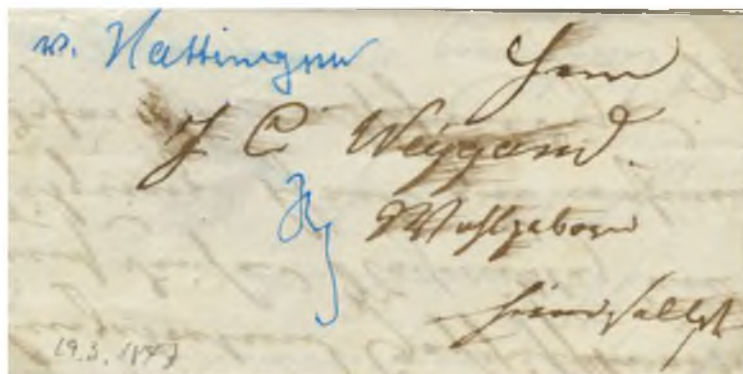 v. Hattingen
Herrn
J C Weygand.
Wohlgeboren
hierselbst
19.3.1847